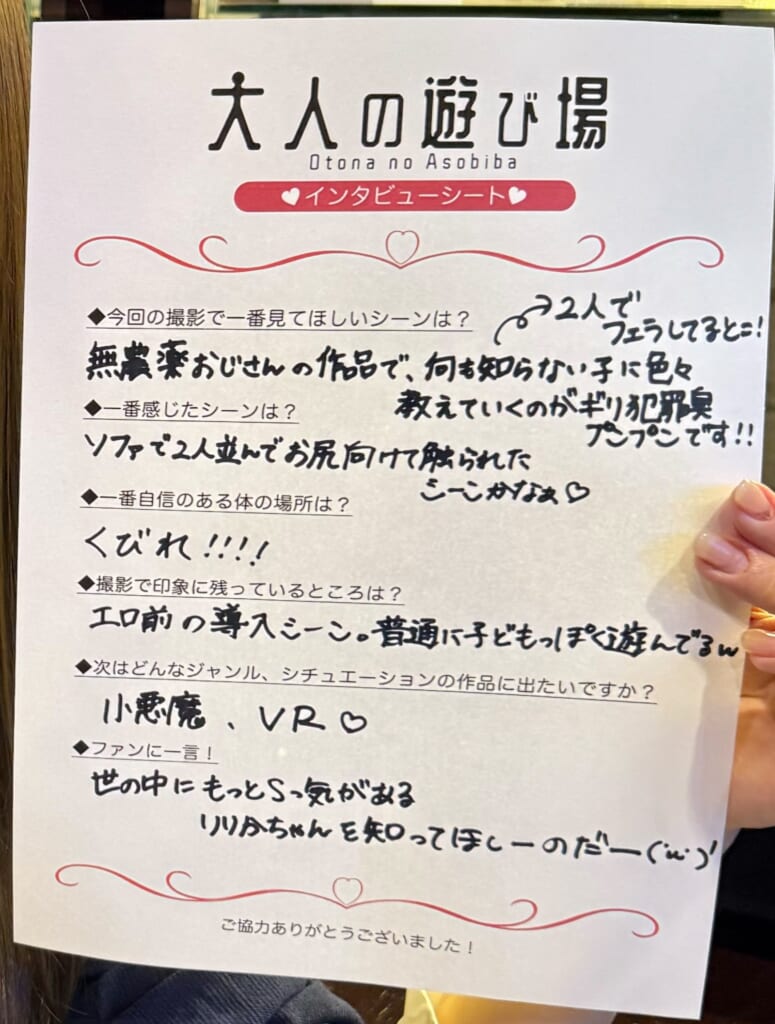 大人の遊び場
Otona no Asobiba
インタビューシート
◆今回の撮影で一番見てほしいシーンは？
2人で
フェラしてるとこ!
無農薬おじさんの作品で、何も知らない子に色々
教えていくのがギリ犯罪臭
プンプンです!!
◆一番感じたシーンは？
ソファで2人並んでお尻向けて触られた
シーンかなぁ♡
◆一番自信のある体の場所は？
くびれ!!!!
◆撮影で印象に残っているところは？
エロ前の導入シーン。普通に子どもっぽく遊んでるw
◆次はどんなジャンル、シチュエーションの作品に出たいですか？
小悪魔、VR♡
◆ファンに一言！
世の中にもっとSっ気がある
りりかちゃんを知ってほしーのだー(˙ω˙)
ご協力ありがとうございました！